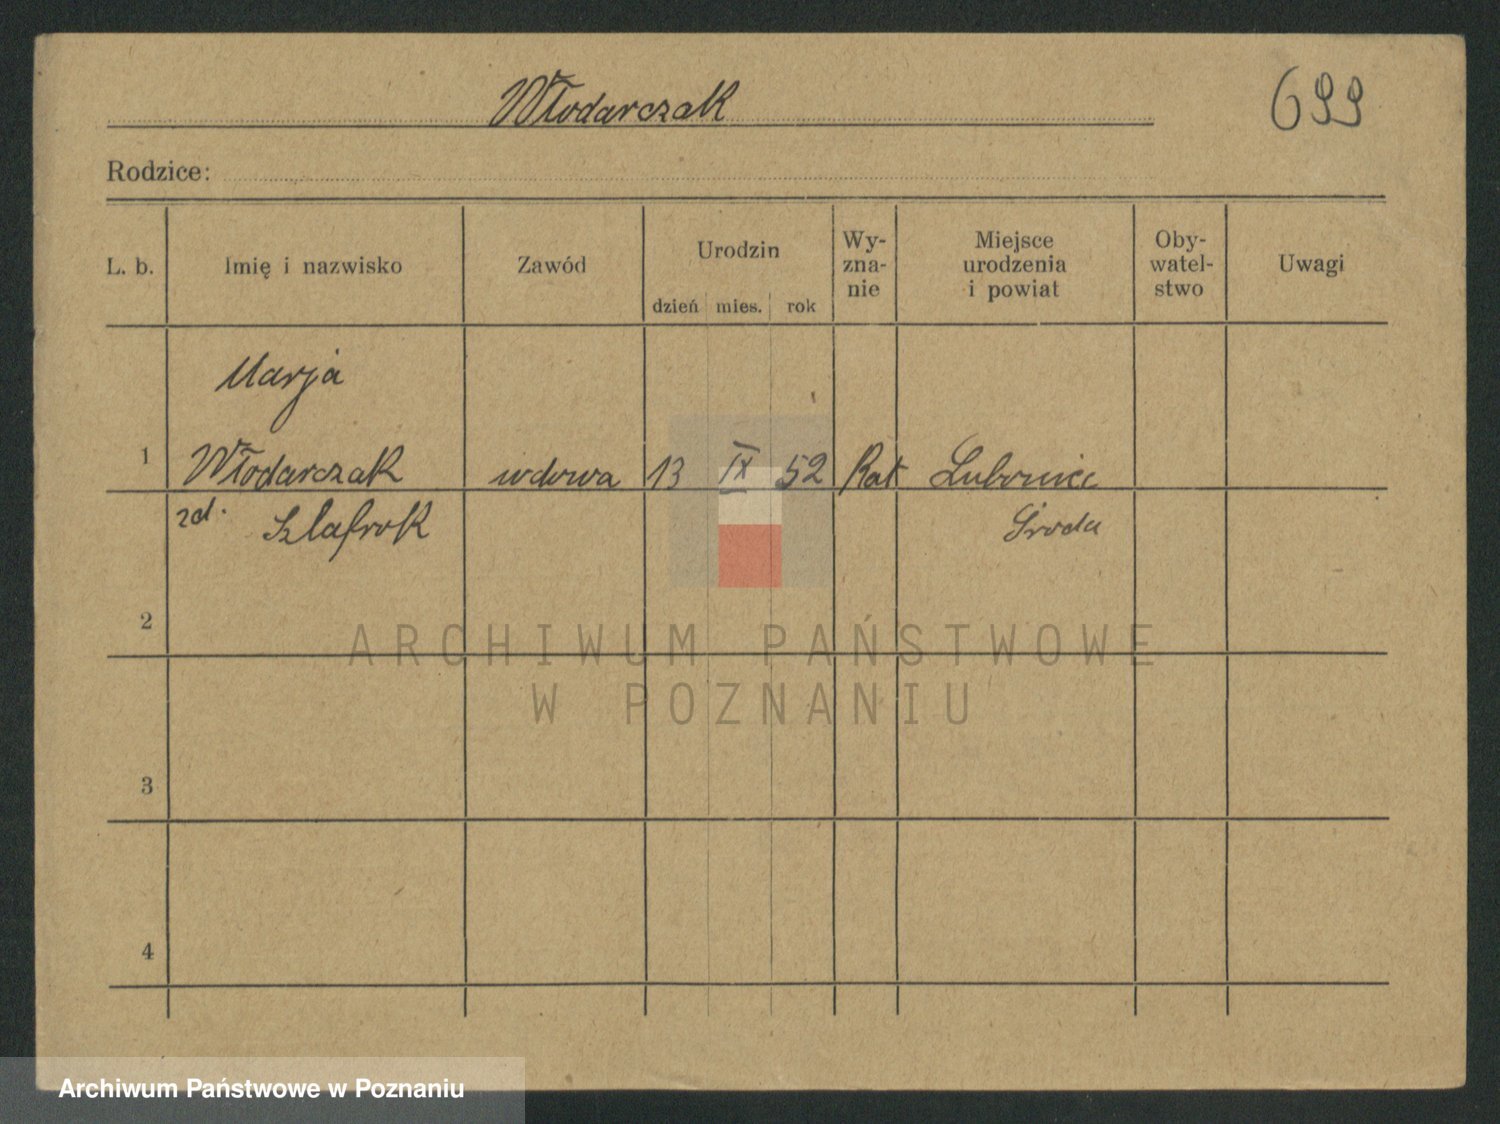 Włodarczak
699
Rodzice:
L. b.
Imię i nazwisko
Zawód
Urodzin
dzień mies. rok
Wy-
zna-
nie
Miejsce
urodzenia
i powiat
Oby-
watel-
stwo
Uwagi
Marja
1 Włodarczak wdowa 13 IX 52 Kat
zd. Szlafrok Środa
2
3
4
ARCHIWUM PAŃSTWOWE
W POZNANIU
Archiwum Państwowe w Poznaniu